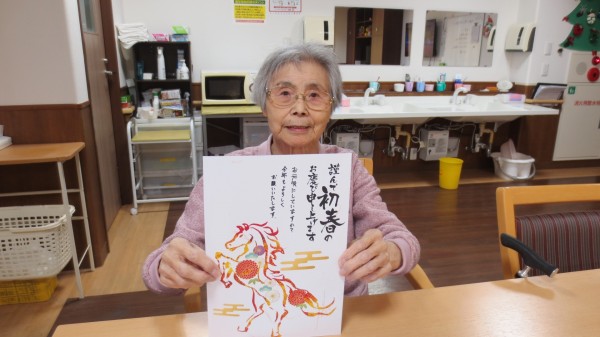 謹んで初春の
お慶び申し上げます
お元気にしていますか?
今年もよろしく
お願いいたします。